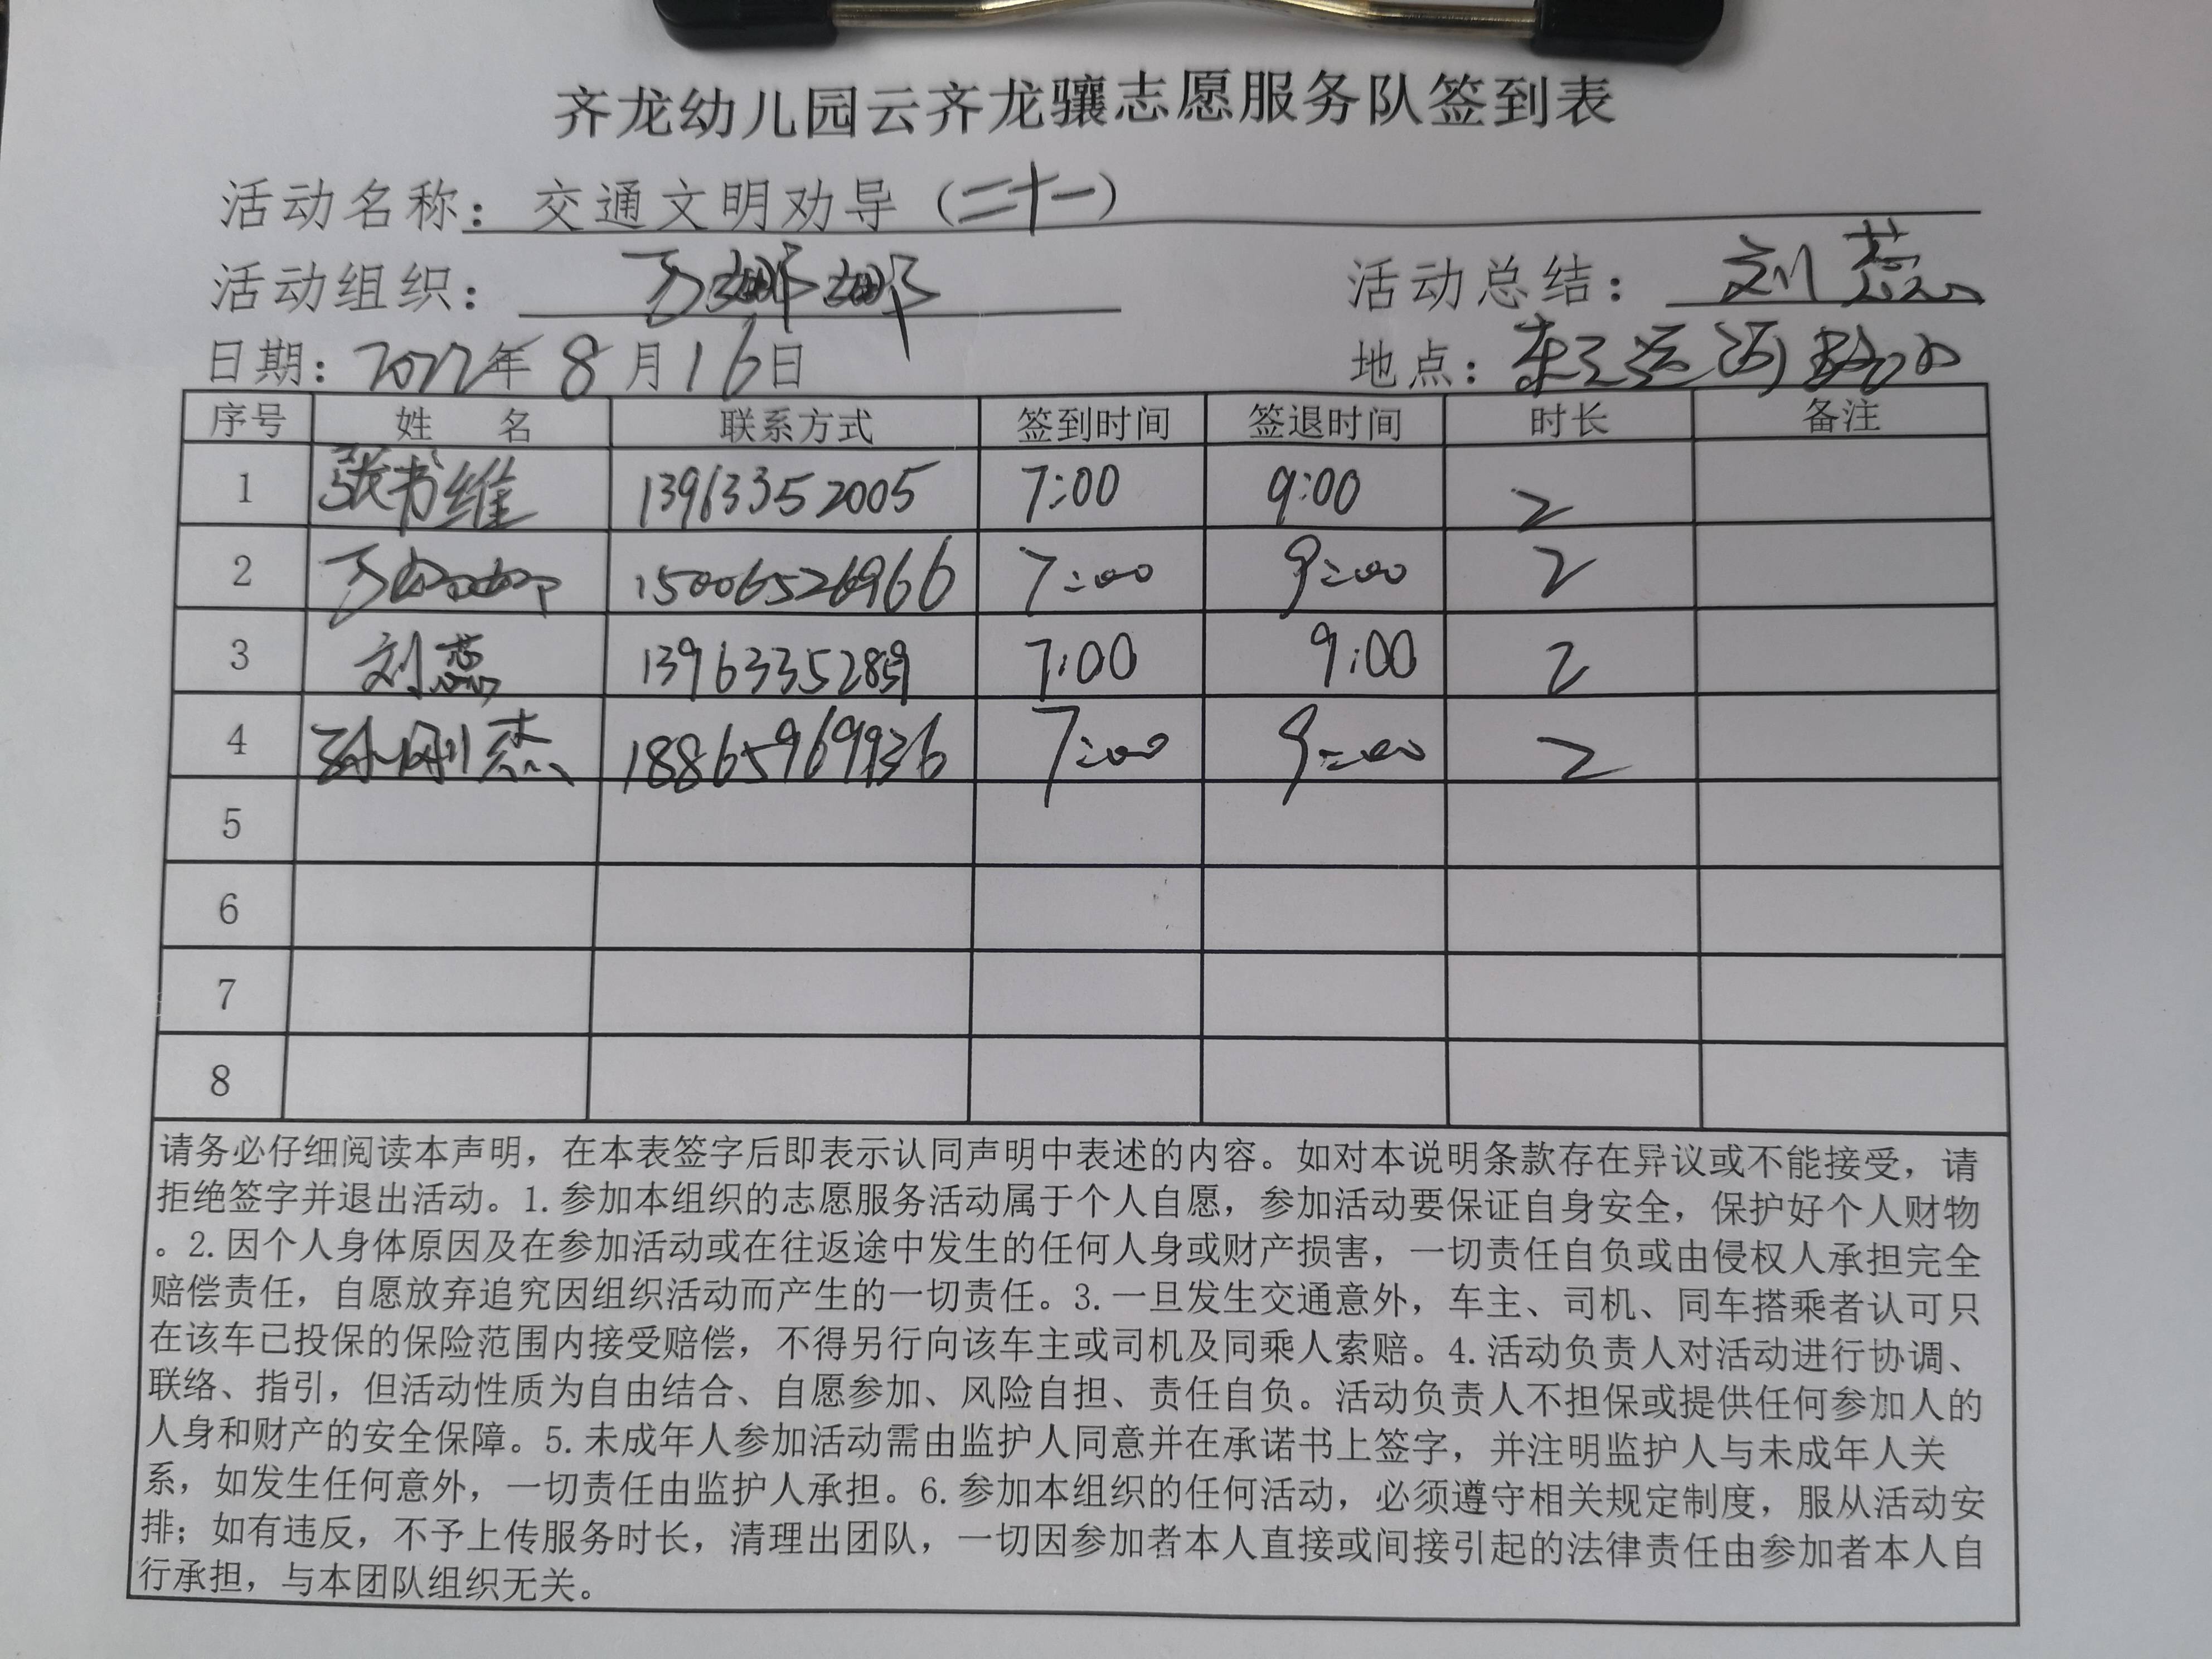 齐龙幼儿园云齐龙骧志愿服务队签到表
活动名称：交通文明劝导（二十一）
活动组织：万娜娜 活动总结：刘蕊
日期：2022年8月16日 地点：东三运河路口
序号 姓 名 联系方式 签到时间 签退时间 时长 备注
1 张书维 13963352005 7:00 9:00 2
2 万娜娜 15006526966 7:00 9:00 2
3 刘蕊 13963352859 7:00 9:00 2
4 孙刚杰 18865969936 7:00 9:00 2
5
6
7
8
请务必仔细阅读本声明，在本表签字后即表示认同声明中表述的内容。如对本说明条款存在异议或不能接受，请
拒绝签字并退出活动。1.参加本组织的志愿服务活动属于个人自愿，参加活动要保证自身安全，保护好个人财物
。2.因个人身体原因及在参加活动或在往返途中发生的任何人身或财产损害，一切责任自负或由侵权人承担完全
赔偿责任，自愿放弃追究因组织活动而产生的一切责任。3.一旦发生交通意外，车主、司机、同车搭乘者认可只
在该车已投保的保险范围内接受赔偿，不得另行向该车主或司机及同乘人索赔。4.活动负责人对活动进行协调、
联络、指引，但活动性质为自由结合、自愿参加、风险自担、责任自负。活动负责人不担保或提供任何参加人的
人身和财产的安全保障。5.未成年人参加活动需由监护人同意并在承诺书上签字，并注明监护人与未成年人关
系，如发生任何意外，一切责任由监护人承担。6.参加本组织的任何活动，必须遵守相关规定制度，服从活动安
排；如有违反，不予上传服务时长，清理出团队，一切因参加者本人直接或间接引起的法律责任由参加者本人自
行承担，与本团队组织无关。